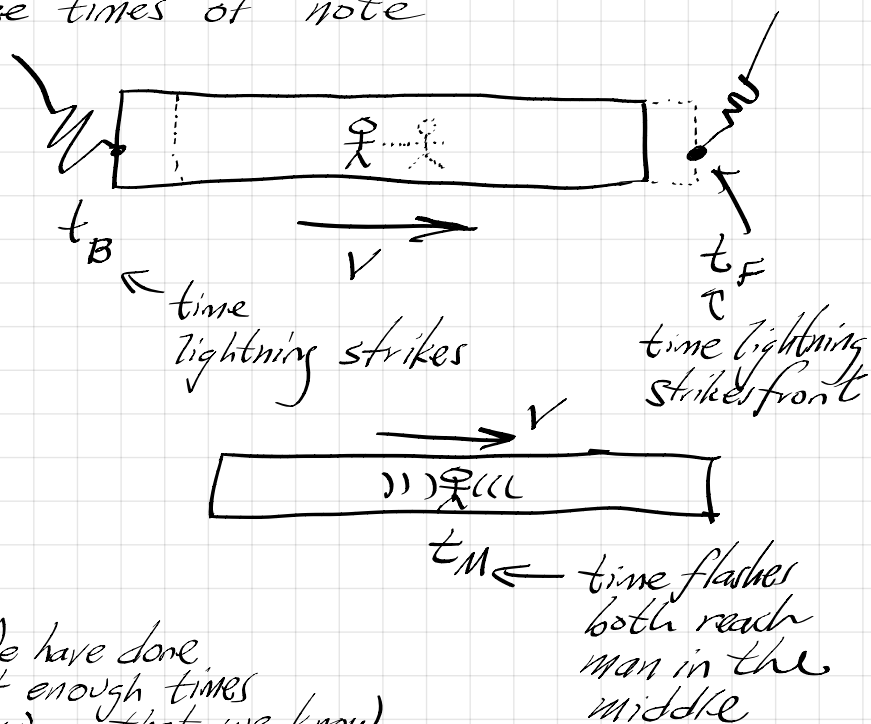 times of note
t_B
V
t_F
time
lightning strikes
time lightning
strikes front
V
t_M
time flashes
both reach
man in the
middle
have done
enough times
that we know)